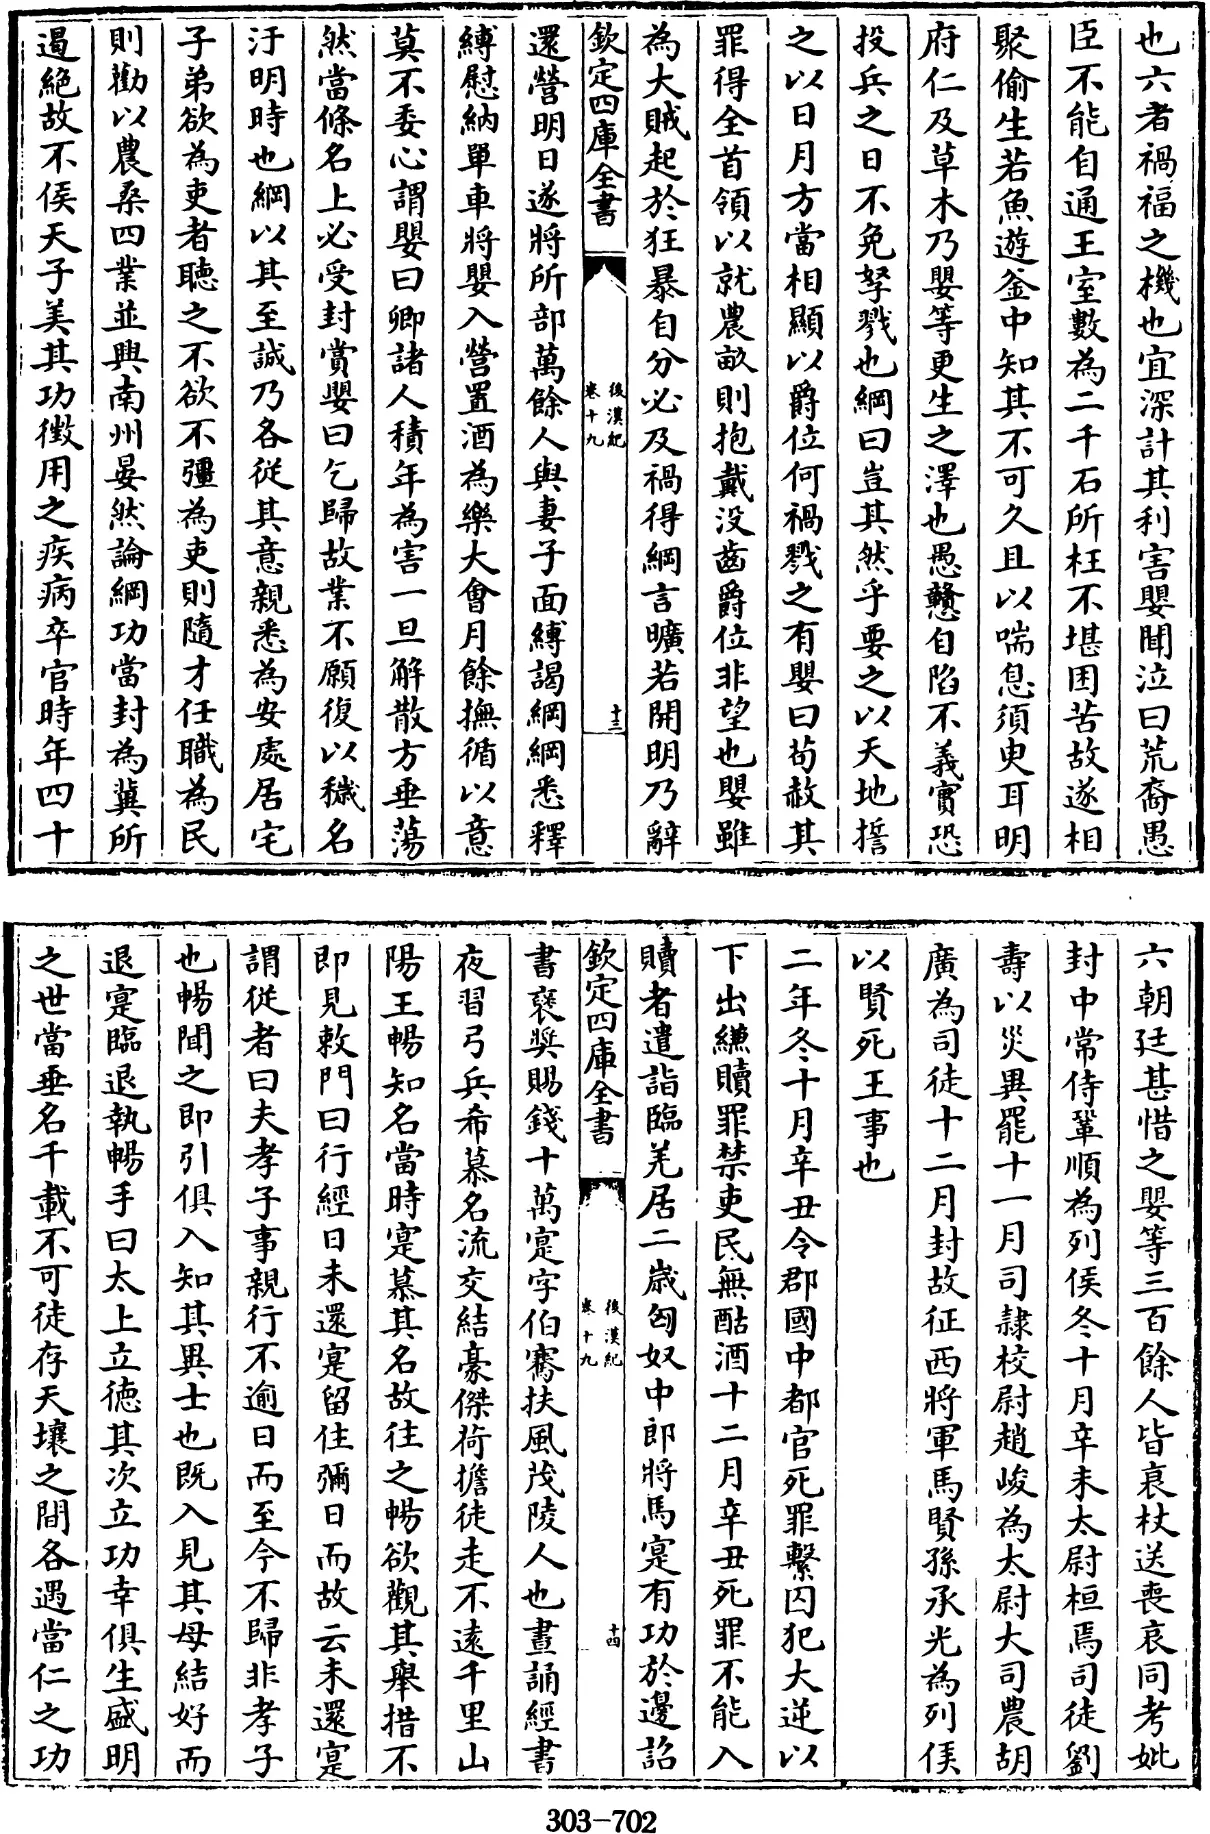 也六者禍福之機也宜深計其利害嬰聞泣曰荒裔愚
臣不能自通王室數為二千石所枉不堪困苦故遂相
聚偷生若魚遊釜中知其不可久且以喘息須臾耳明
府仁及草木乃嬰等更生之澤也愚戇自陷不義實恐
投兵之日不免孥戮也綱曰豈其然乎要之以天地誓
之以日月方當相顯以爵位何禍戮之有嬰曰茍赦其
罪得全首領以就農畝則抱戴没齒爵位非望也嬰雖
為大賊起於狂暴自分必及禍得綱言曠若開明乃辭
欽定四庫全書
後漢紀
卷十九
十三
還營明日遂將所部萬餘人與妻子面縛謁綱綱悉釋
縛慰納單車將嬰入營置酒為樂大會月餘撫循以意
莫不委心謂嬰曰卿諸人積年為害一旦解散方垂蕩
然當條名上必受封賞嬰曰乞歸故業不願復以穢名
汙明時也綱以其至誠乃各從其意親悉為安處居宅
子弟欲為吏者聽之不欲不彊為吏則隨才任職為民
則勸以農桑四業並興南州晏然論綱功當封為冀所
遏絶故不侯天子美其功徴用之疾病卒官時年四十
六朝廷甚惜之嬰等三百餘人皆衰杖送喪哀同考妣
封中常侍鞏順為列侯冬十月辛未太尉桓焉司徒劉
壽以災異罷十一月司隷校尉趙峻為太尉大司農胡
廣為司徒十二月封故征西將軍馬賢孫承光為列侯
以賢死王事也
二年冬十月辛丑令郡國中都官死罪繫囚犯大逆以
下出縑贖罪禁吏民無酤酒十二月辛丑死罪不能入
贖者遣詣臨羌居二歳匈奴中郎將馬寔有功於邊詔
欽定四庫全書
後漢紀
卷十九
十四
書襃奬賜錢十萬寔字伯騫扶風茂陵人也晝誦經書
夜習弓兵希慕名流交結豪傑荷擔徒走不遠千里山
陽王暢知名當時寔慕其名故往之暢欲觀其舉措不
即見敕門曰行經日未還寔留住彌日而故云未還寔
謂從者曰夫孝子事親行不逾日而至今不歸非孝子
也暢聞之即引俱入知其異士也既入見其母結好而
退寔臨退執暢手曰太上立德其次立功幸俱生盛明
之世當垂名千載不可徒存天壤之間各遇當仁之功
303-702